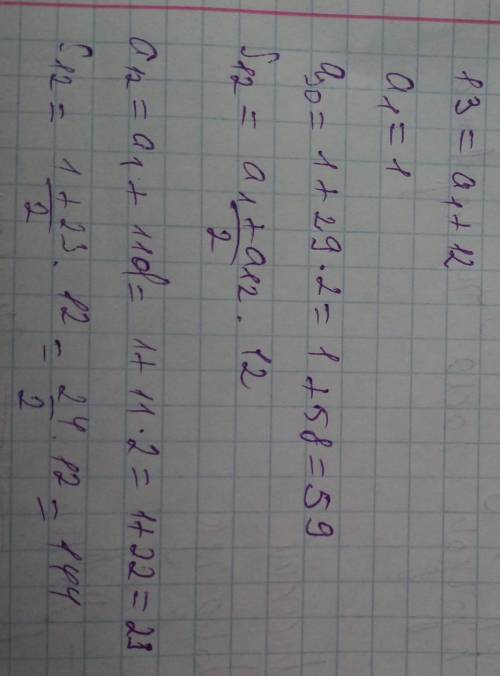 13 = a₁ + 12
a₁ = 1
a₃₀ = 1 + 29 · 2 = 1 + 58 = 59
S₁₂ = (a₁ + a₁₂)/2 · 12
a₁₂ = a₁ + 11d = 1 + 11 · 2 = 1 + 22 = 23
S₁₂ = (1 + 23)/2 · 12 = 24/2 · 12 = 144